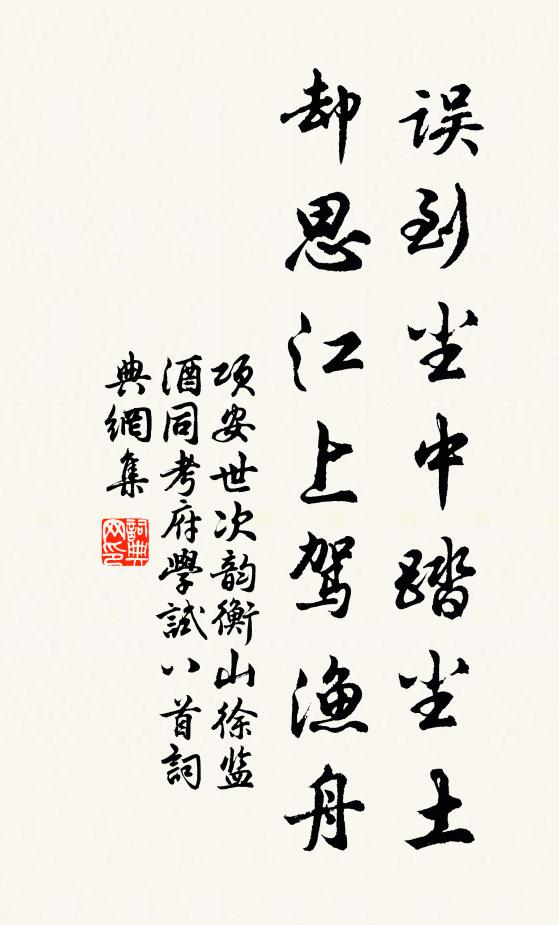 误到尘中踏尘土
却思江上驾渔舟
项安世次韵衡山徐监
酒同考府學試八首詞
典網集
詞典网印